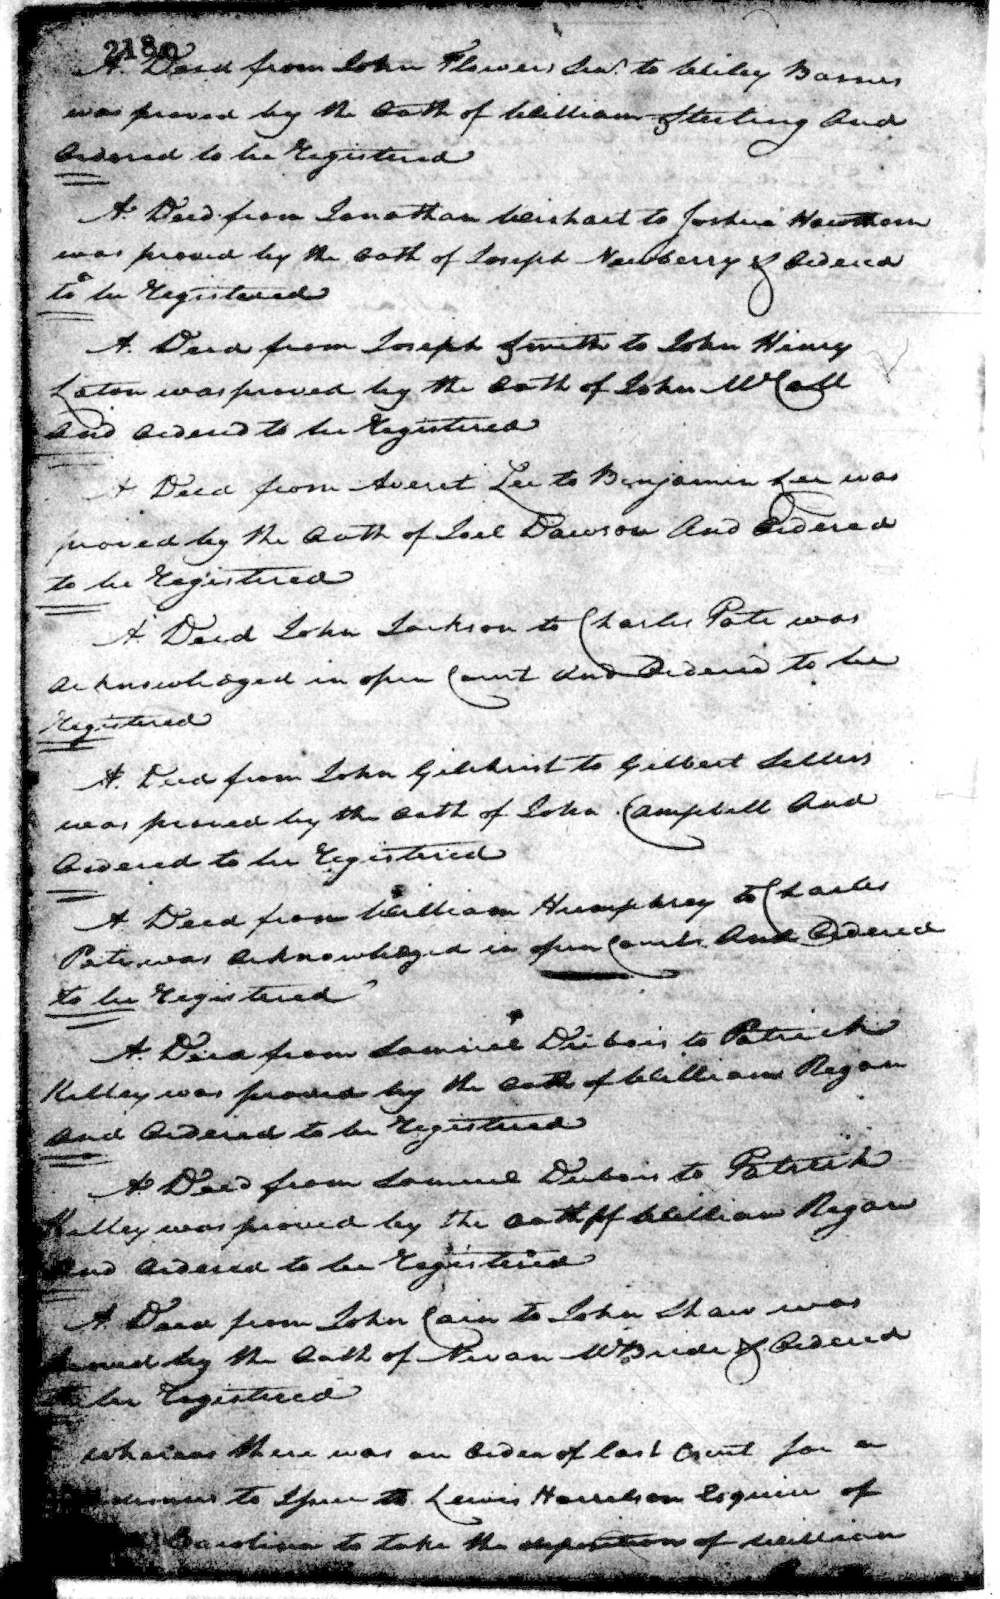 218
A Deed from John Flowers Senr. to Wiley Barnes
was proved by the Oath of William Sterling And
Ordered to be Registered
A Deed from Jonathan Wishart to Joshua Hawthorn
was proved by the Oath of Joseph Newberry & Ordered
to be Registered
A Deed from Joseph Smith to John Henry
Laton was proved by the Oath of John McCall
And Ordered to be Registered
A Deed from Averet Lee to Benjamin Lee was
proved by the Oath of Joel Dawson And Ordered
to be Registered
A Deed John Jackson to Charles Pate was
acknowledged in open Court And Ordered to be
Registered
A Deed from John Gilchrist to Gilbert Sellers
was proved by the Oath of John Campbell And
Ordered to be Registered
A Deed from William Humphrey to Charles
Pate was acknowledged in open Court And Ordered
to be Registered
A Deed from Samuel Dubois to Patrick
Kelley was proved by the Oath of William Regan
And Ordered to be Registered
A Deed from Samuel Dubois to Patrick
Kelley was proved by the Oath of William Regan
And Ordered to be Registered
A Deed from John Cain to John Shaw was
proved by the Oath of Nevan McBride & Ordered
to be Registered
Whereas there was an Order of last Court for a
to Issue to Lewis Harrelson Esquire of
Carolina to take the deposition of William